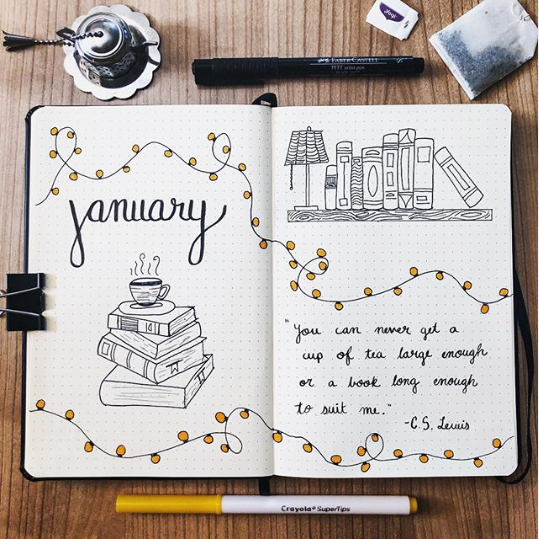 FABER-CASTELL
PITT artist pen
january
"You can never get a
cup of tea large enough
or a book long enough
to suit me."
-C.S. Lewis
Crayola SuperTips